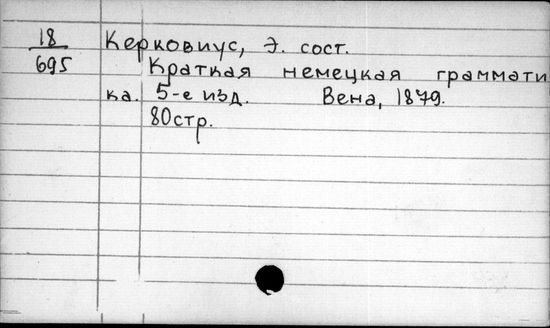 18
695
Керковиус, Э. сост.
Краткая немецкая граммати
ка. 5-е изд. Вена, 1879.
80стр.